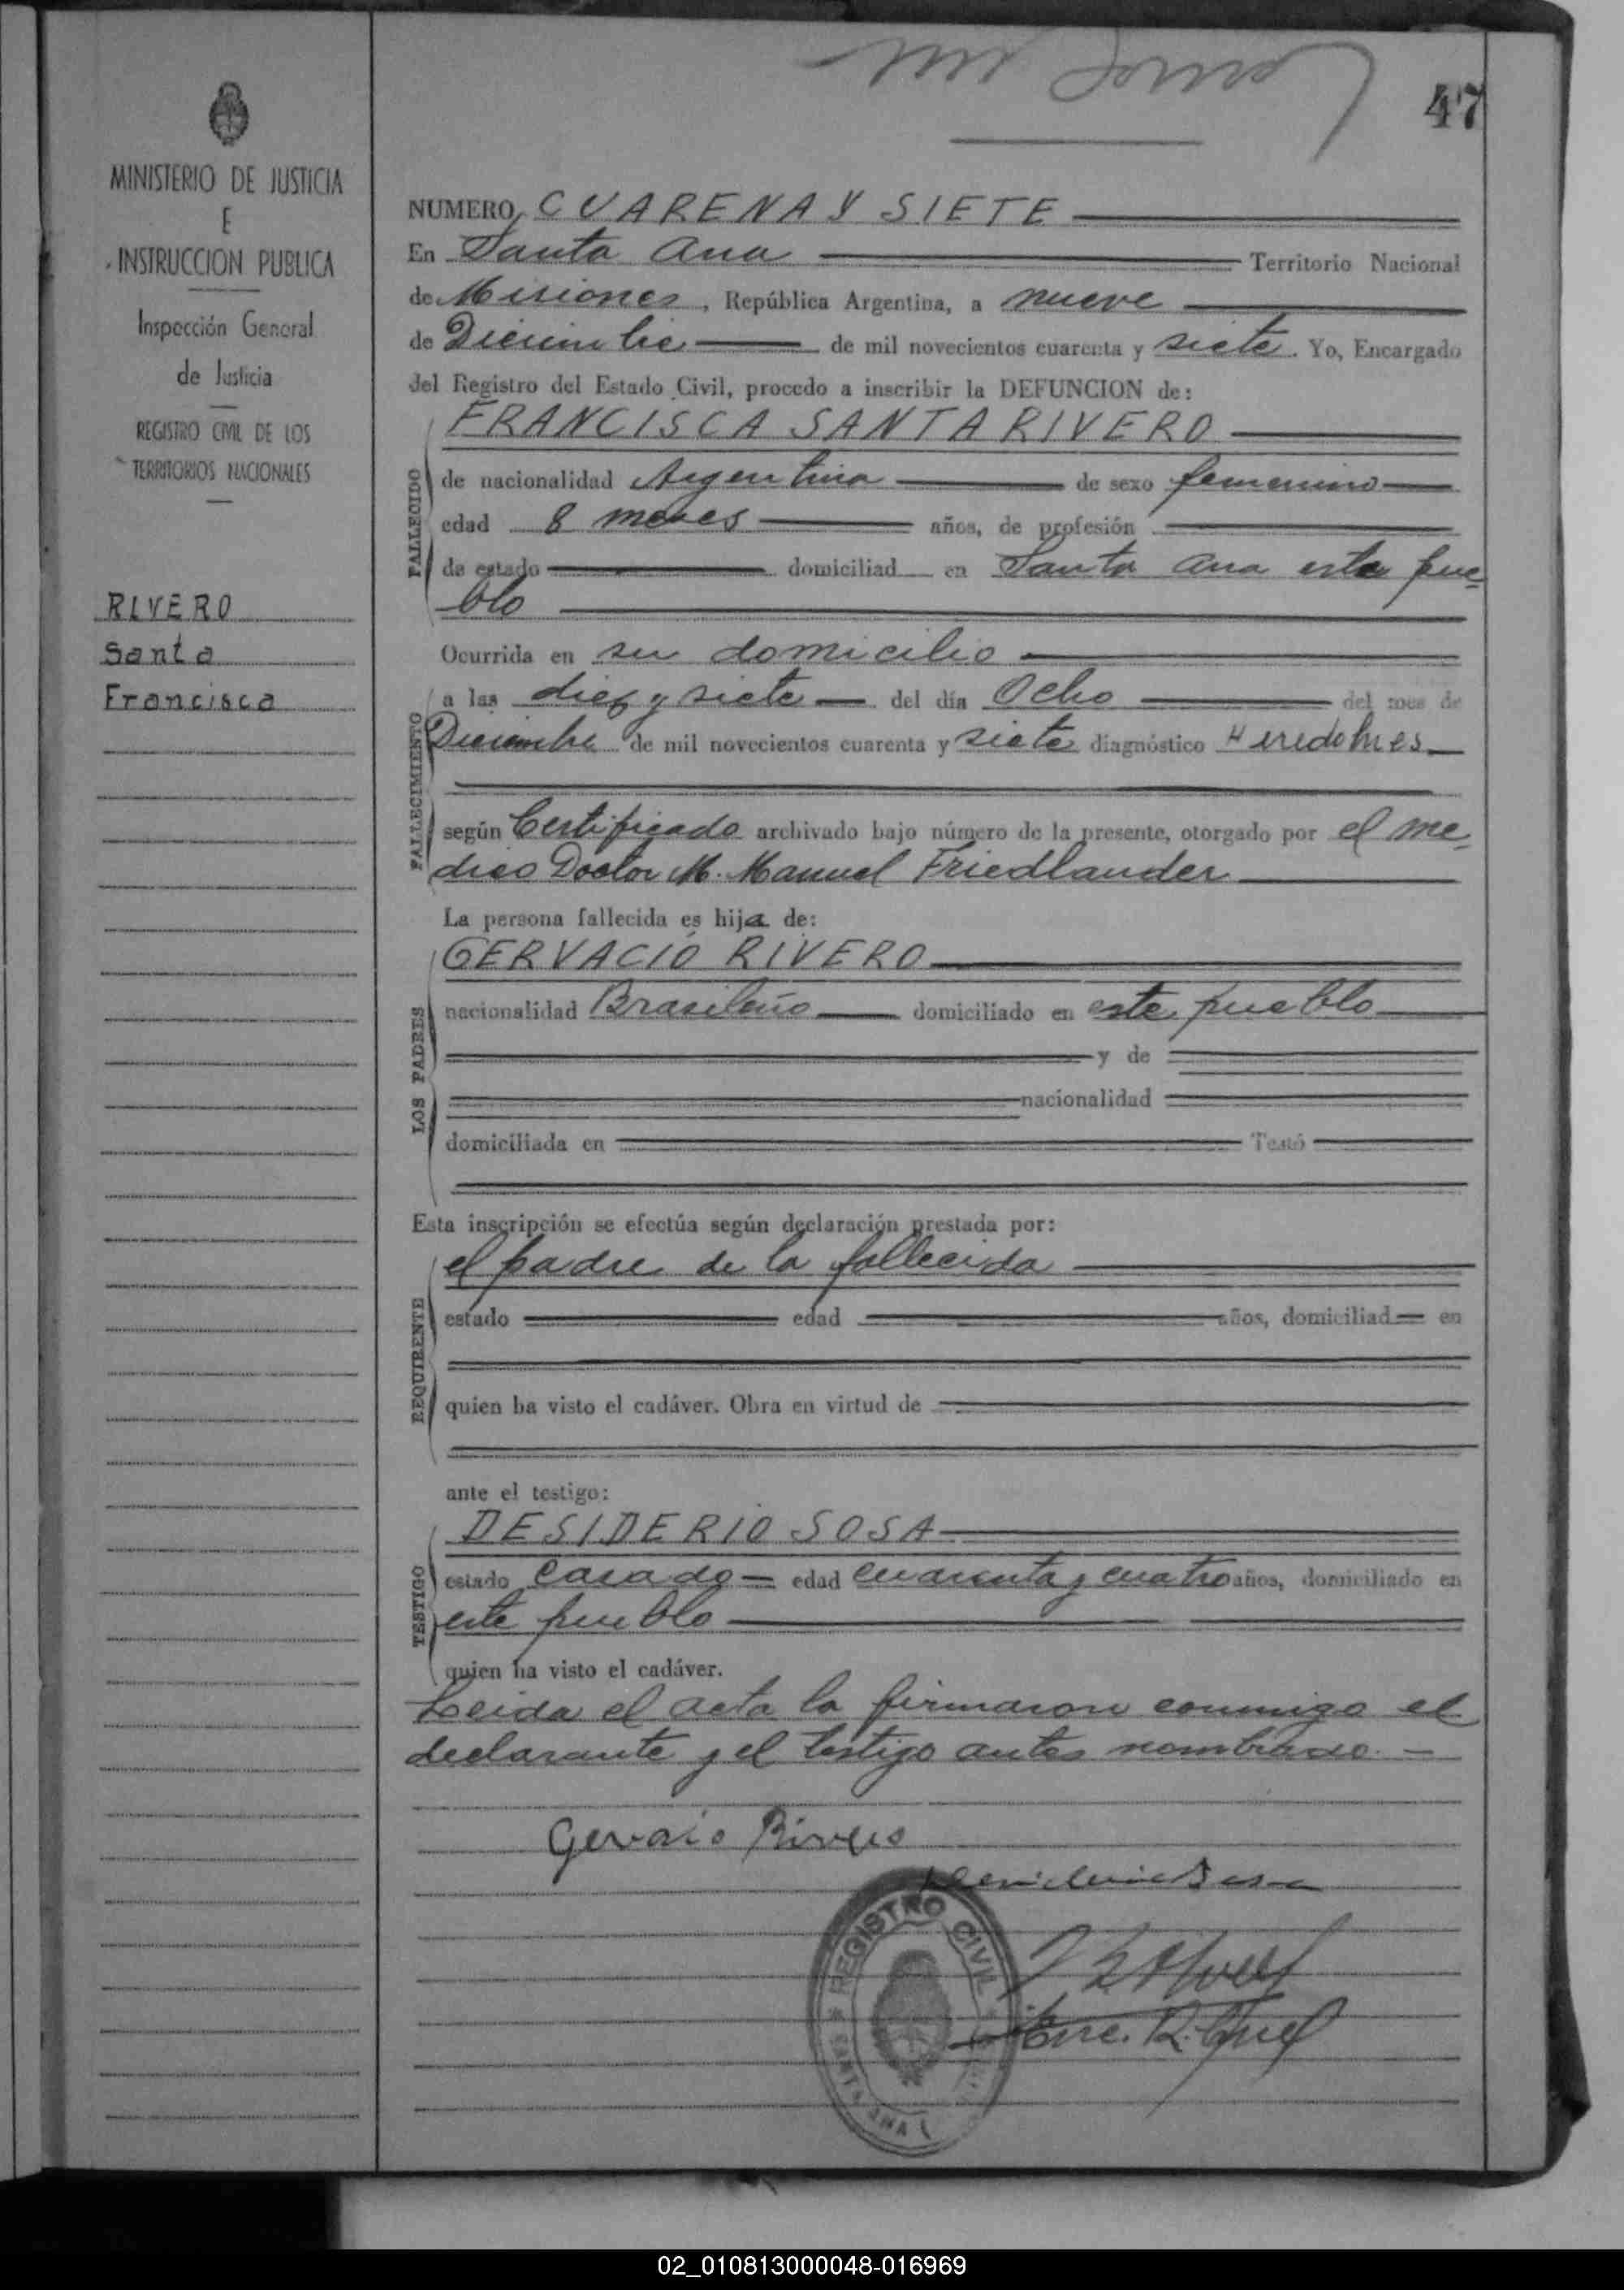 47
MINISTERIO DE JUSTICIA
E
INSTRUCCION PUBLICA
Inspección General
de Justicia
REGISTRO CIVIL DE LOS
TERRITORIOS NACIONALES
RIVERO
Santa
Francisca
NUMERO CUARENA Y SIETE
En Santa Ana Territorio Nacional
de Misiones, República Argentina, a nueve
de Diciembre de mil novecientos cuarenta y siete. Yo, Encargado
del Registro del Estado Civil, procedo a inscribir la DEFUNCION de:
FRANCISCA SANTA RIVERO
FALLECIDO
de nacionalidad Argentina de sexo femenino
edad 8 meses años, de profesión
de estado domiciliad en Santa Ana este pue-
blo
Ocurrida en su domicilio
FALLECIMIENTO
a las diez y siete del día Ocho del mes de
Diciembre de mil novecientos cuarenta y siete diagnóstico
según Certificado archivado bajo número de la presente, otorgado por el me-
dico Doctor M. Manuel Friedlander
La persona fallecida es hija de:
GERVACIO RIVERO
LOS PADRES
nacionalidad Brasileño domiciliado en este pueblo
y de
nacionalidad
domiciliada en Testó
Esta inscripción se efectúa según declaración prestada por:
el padre de la fallecida
REQUIRENTE
estado edad años, domiciliad en
quien ha visto el cadáver. Obra en virtud de
ante el testigo:
DESIDERIO SOSA
TESTIGO
estado Casado edad cuarenta y cuatro años, domiciliado en
este pueblo
quien ha visto el cadáver.
Leida el acta la firmaron conmigo el
declarante y el testigo antes nombrado.
REGISTRO CIVIL
SANTA ANA
02_010813000048-016969